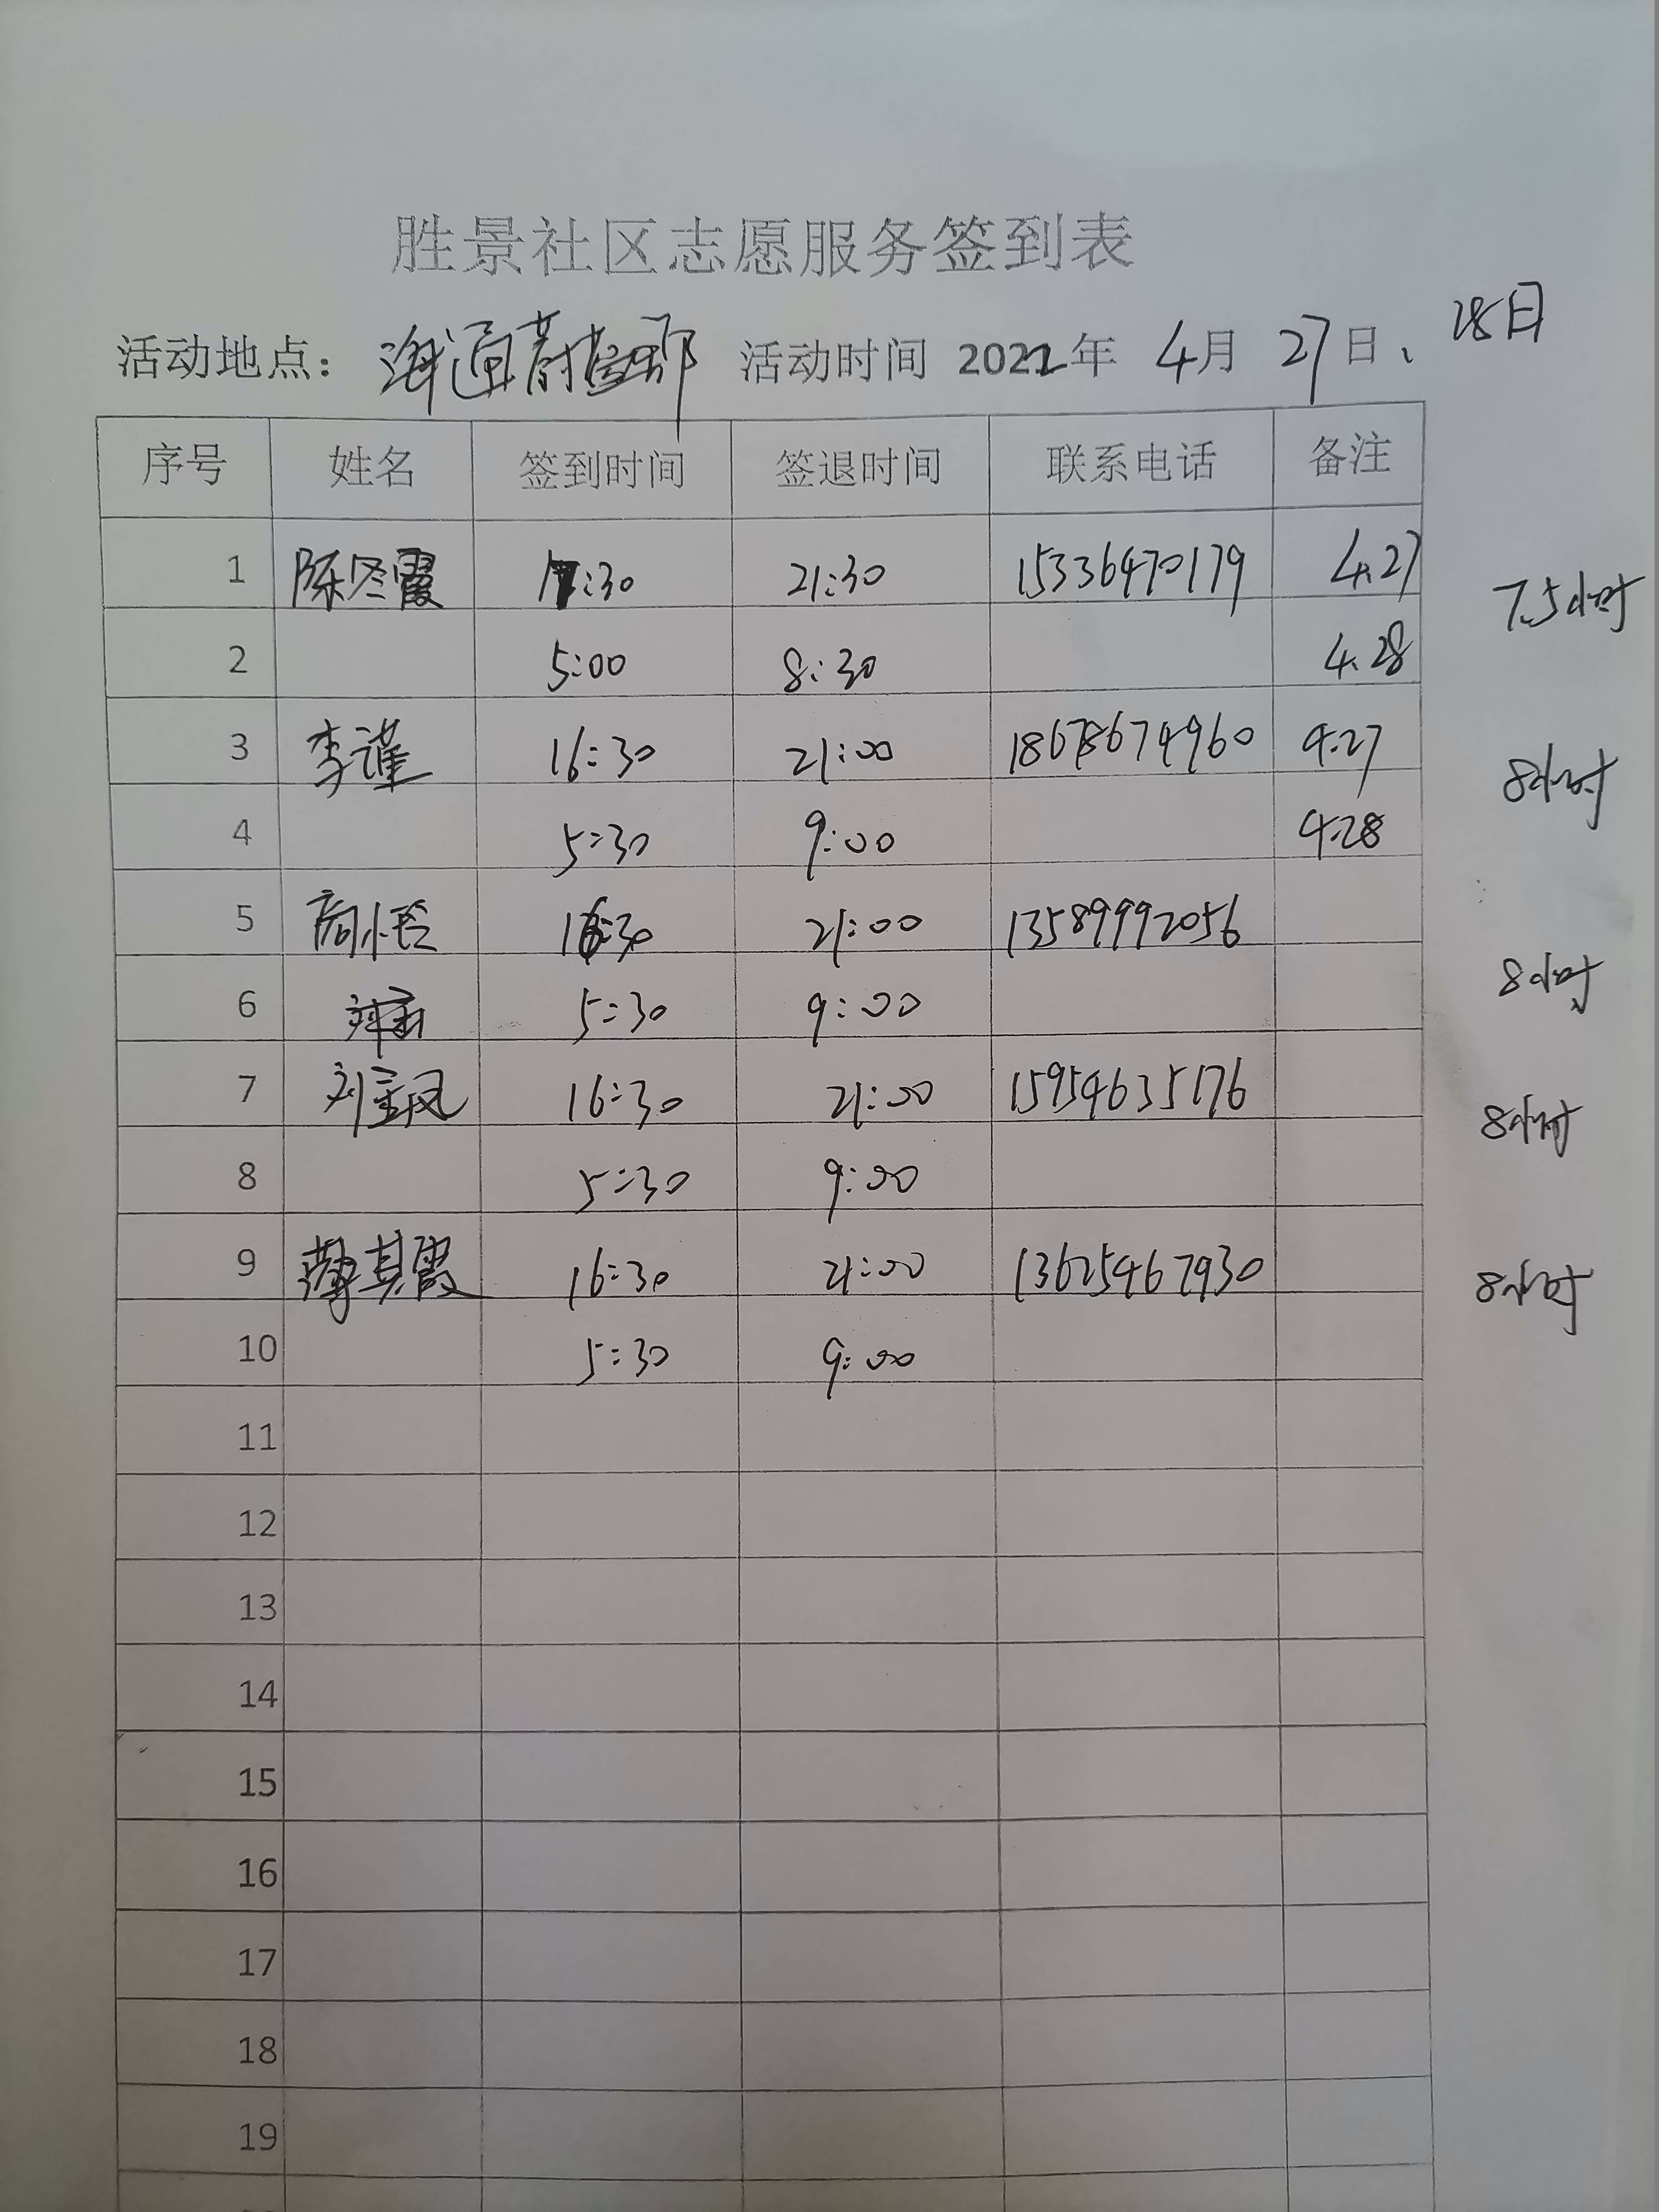 胜景社区志愿服务签到表
活动地点： 海通 活动时间 2022年 4月 27日、28日
序号 姓名 签到时间 签退时间 联系电话 备注
1 陈冬霞 17:30 21:30 15336470179 4.27 7.5小时
2 5:00 8:30 4.28
3 李谨 16:30 21:00 18678674960 4.27 8小时
4 5:30 9:00 4.28
5 周小玲 16:30 21:00 13589992056 8小时
6 5:30 9:00
7 刘金凤 16:30 21:00 15954635176 8小时
8 5:30 9:00
9 薄其霞 16:30 21:00 13625467930 8小时
10 5:30 9:00
11
12
13
14
15
16
17
18
19